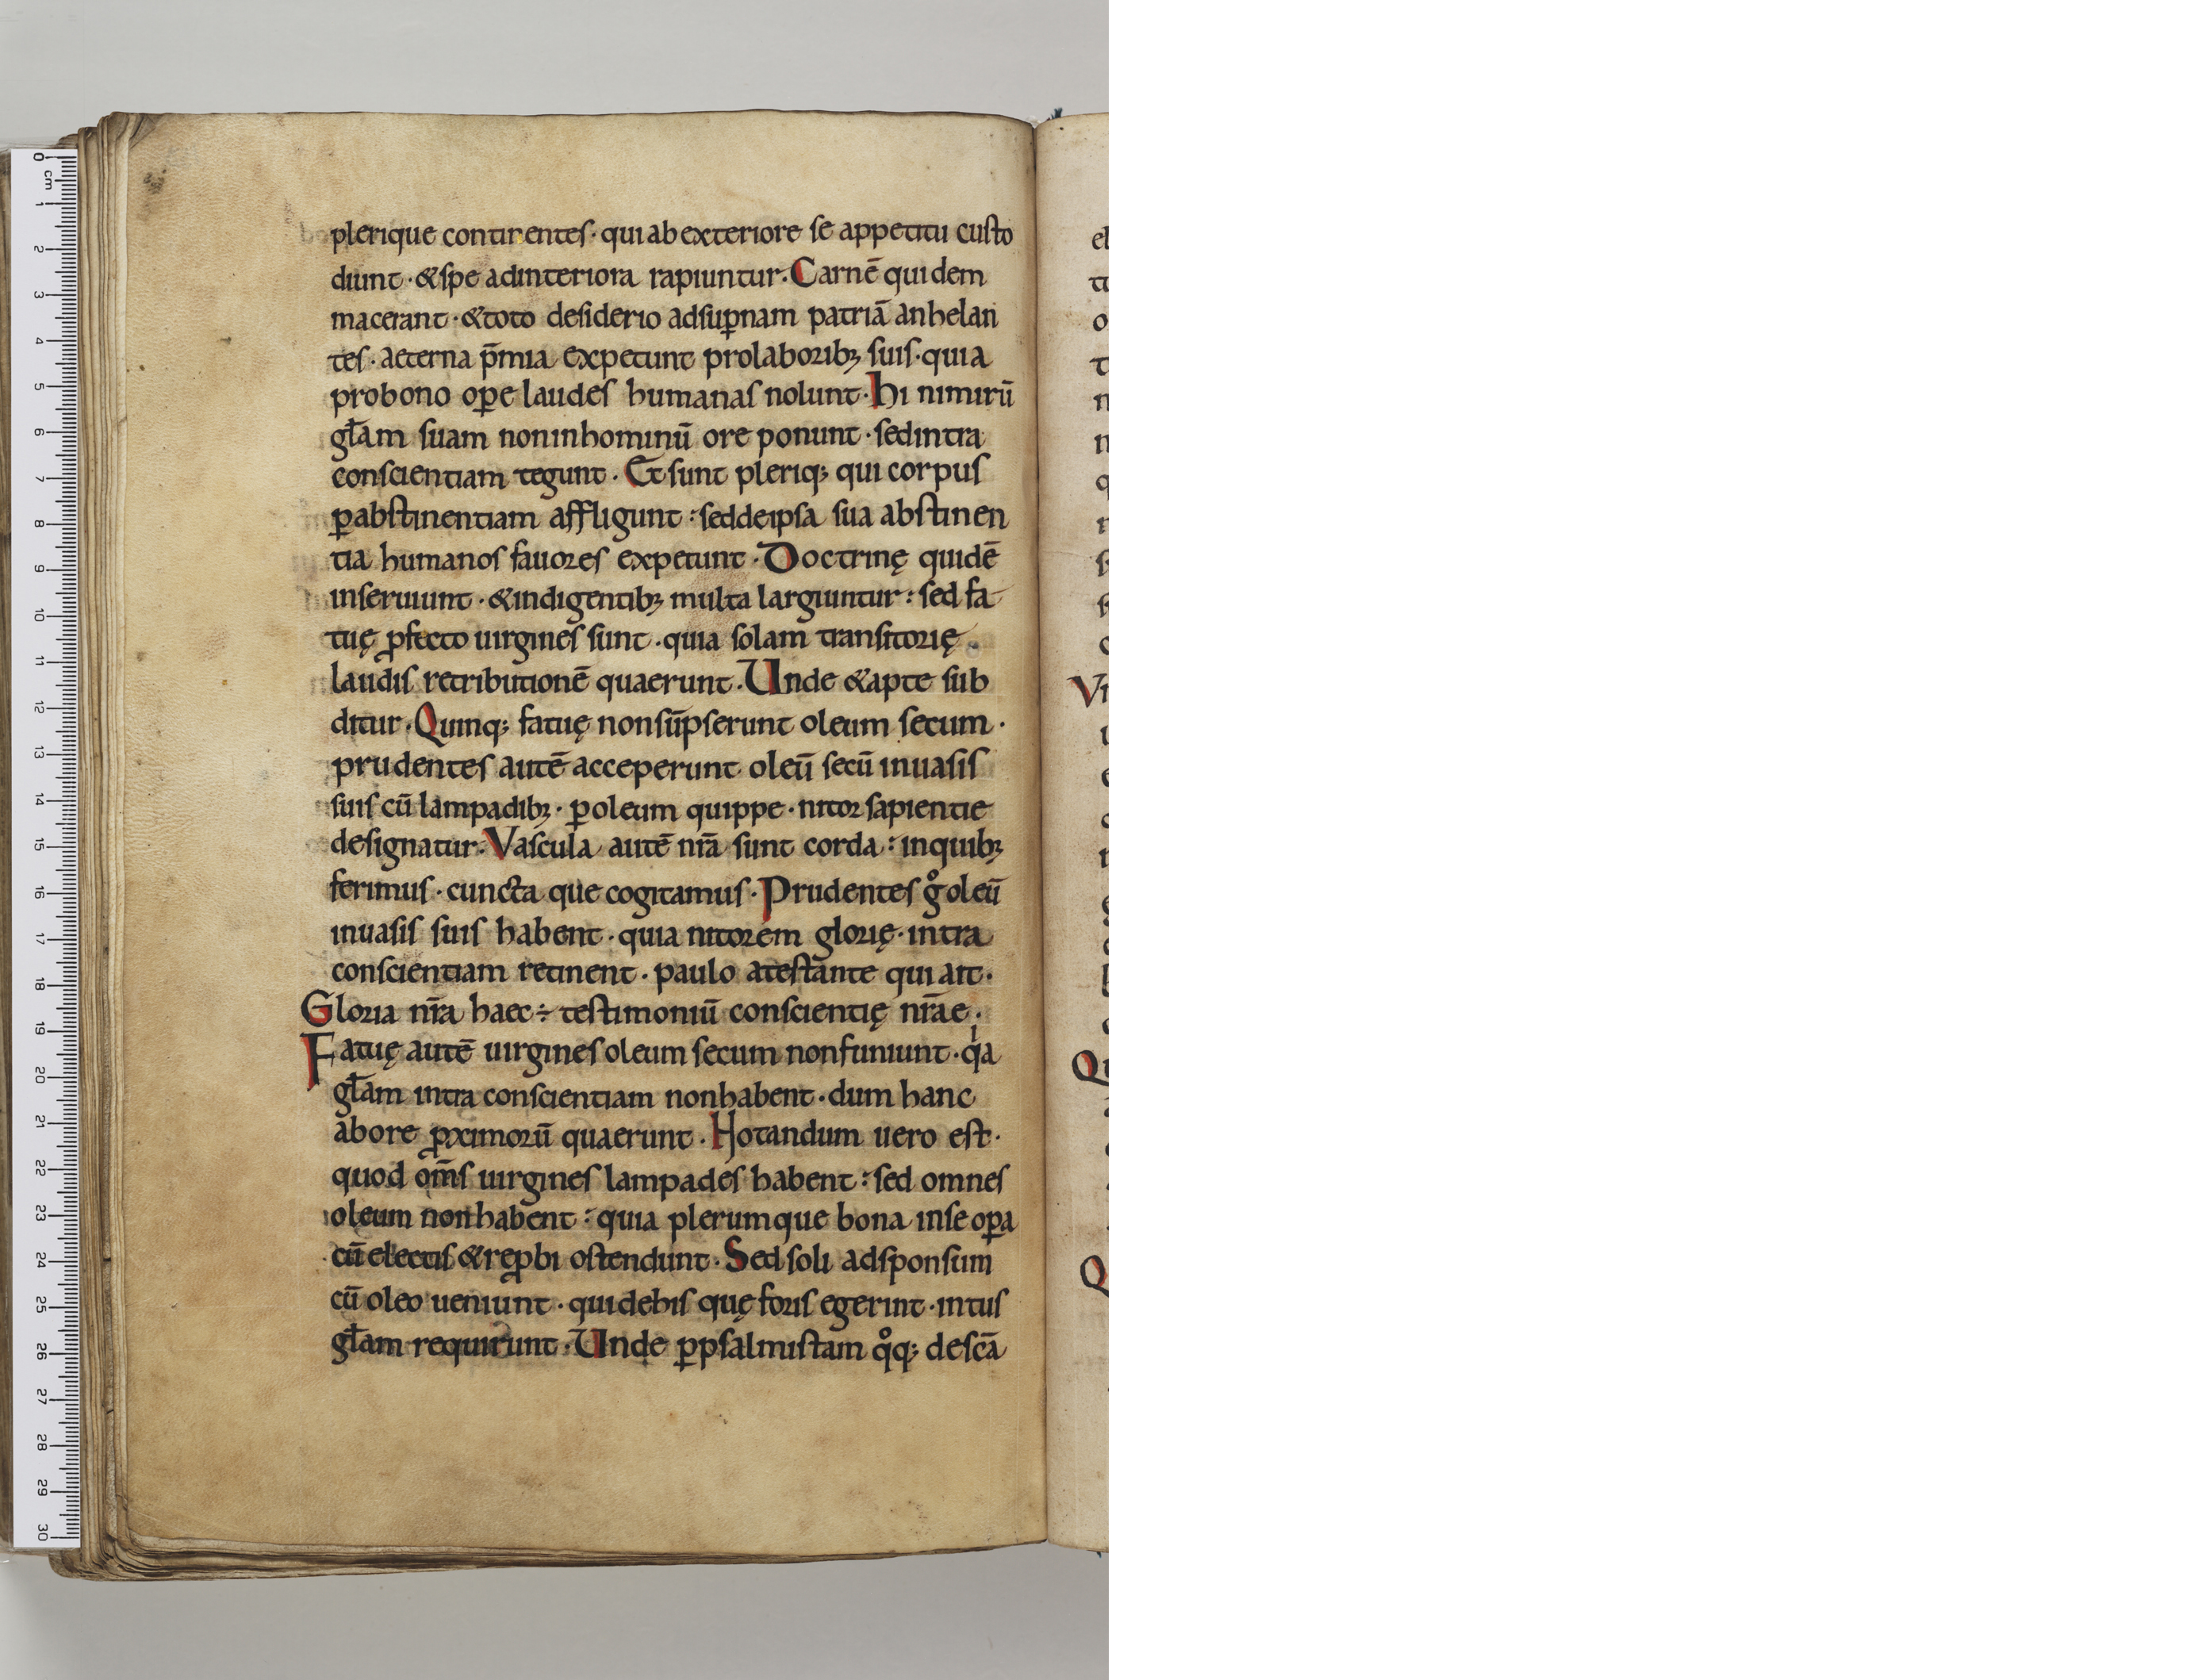 plerique continentes · qui ab exteriore se appetitu custo
diunt · & spe ad interiora rapiuntur. Carnē quidem
macerant · & toto desiderio ad sup̄nam patriā anhelan
tes · aeterna p̄mia expetunt pro laborib; suis · quia
pro bono op̄e laudes humanas nolunt · hi nimirū
gl̄am suam non in hominū ore ponunt · sed intra
conscientiam tegunt · Et sunt pleriq; qui corpus
ꝑ abstinentiam affligunt : sed de ipsa sua abstinen
tia humanos fauores expetunt · Doctrinę quidē
inseruiunt · & indigentib; multa largiuntur : sed fa
tuę ꝓfecto uirgines sunt · quia solam transitorię
laudis retributionē quaerunt. Unde & apte sub
ditur · Quinq; fatuę non sūpserunt oleum secum ·
prudentes autē acceperunt oleū secū in uasis
suis cū lampadib; · ꝑ oleum quippe · nitor sapientie
designatur. Vascula autē nr̄a sunt corda : in quib;
ferimus · cuncta que cogitamus · Prudentes gͦ oleū
in uasis suis habent · quia nitorem glorię · intra
conscientiam retinent · paulo atestante qui ait ·
Gloria nr̄a haec ÷ testimoniū conscientię nr̄ae ·
Fatuę autē uirgines oleum secum non funiunt · qⁱa
gl̄am intra conscientiam non habent · dum hanc
ab ore ꝓximorū quaerunt · Hotandum uero est ·
quod om̄s uirgines lampades habent : sed omnes
oleum non habent : quia plerumque bona in se oꝑa
cū electis & reꝓbi ostendunt · Sed soli ad sponsum
cū oleo ueniunt · qui de his quę foris egerint · intus
gl̄am requirunt · Unde ꝑ psalmistam qͦq; de scā
0
cm
1
2
3
4
5
6
7
8
9
10
11
12
13
14
15
16
17
18
19
20
21
22
23
24
25
26
27
28
29
30